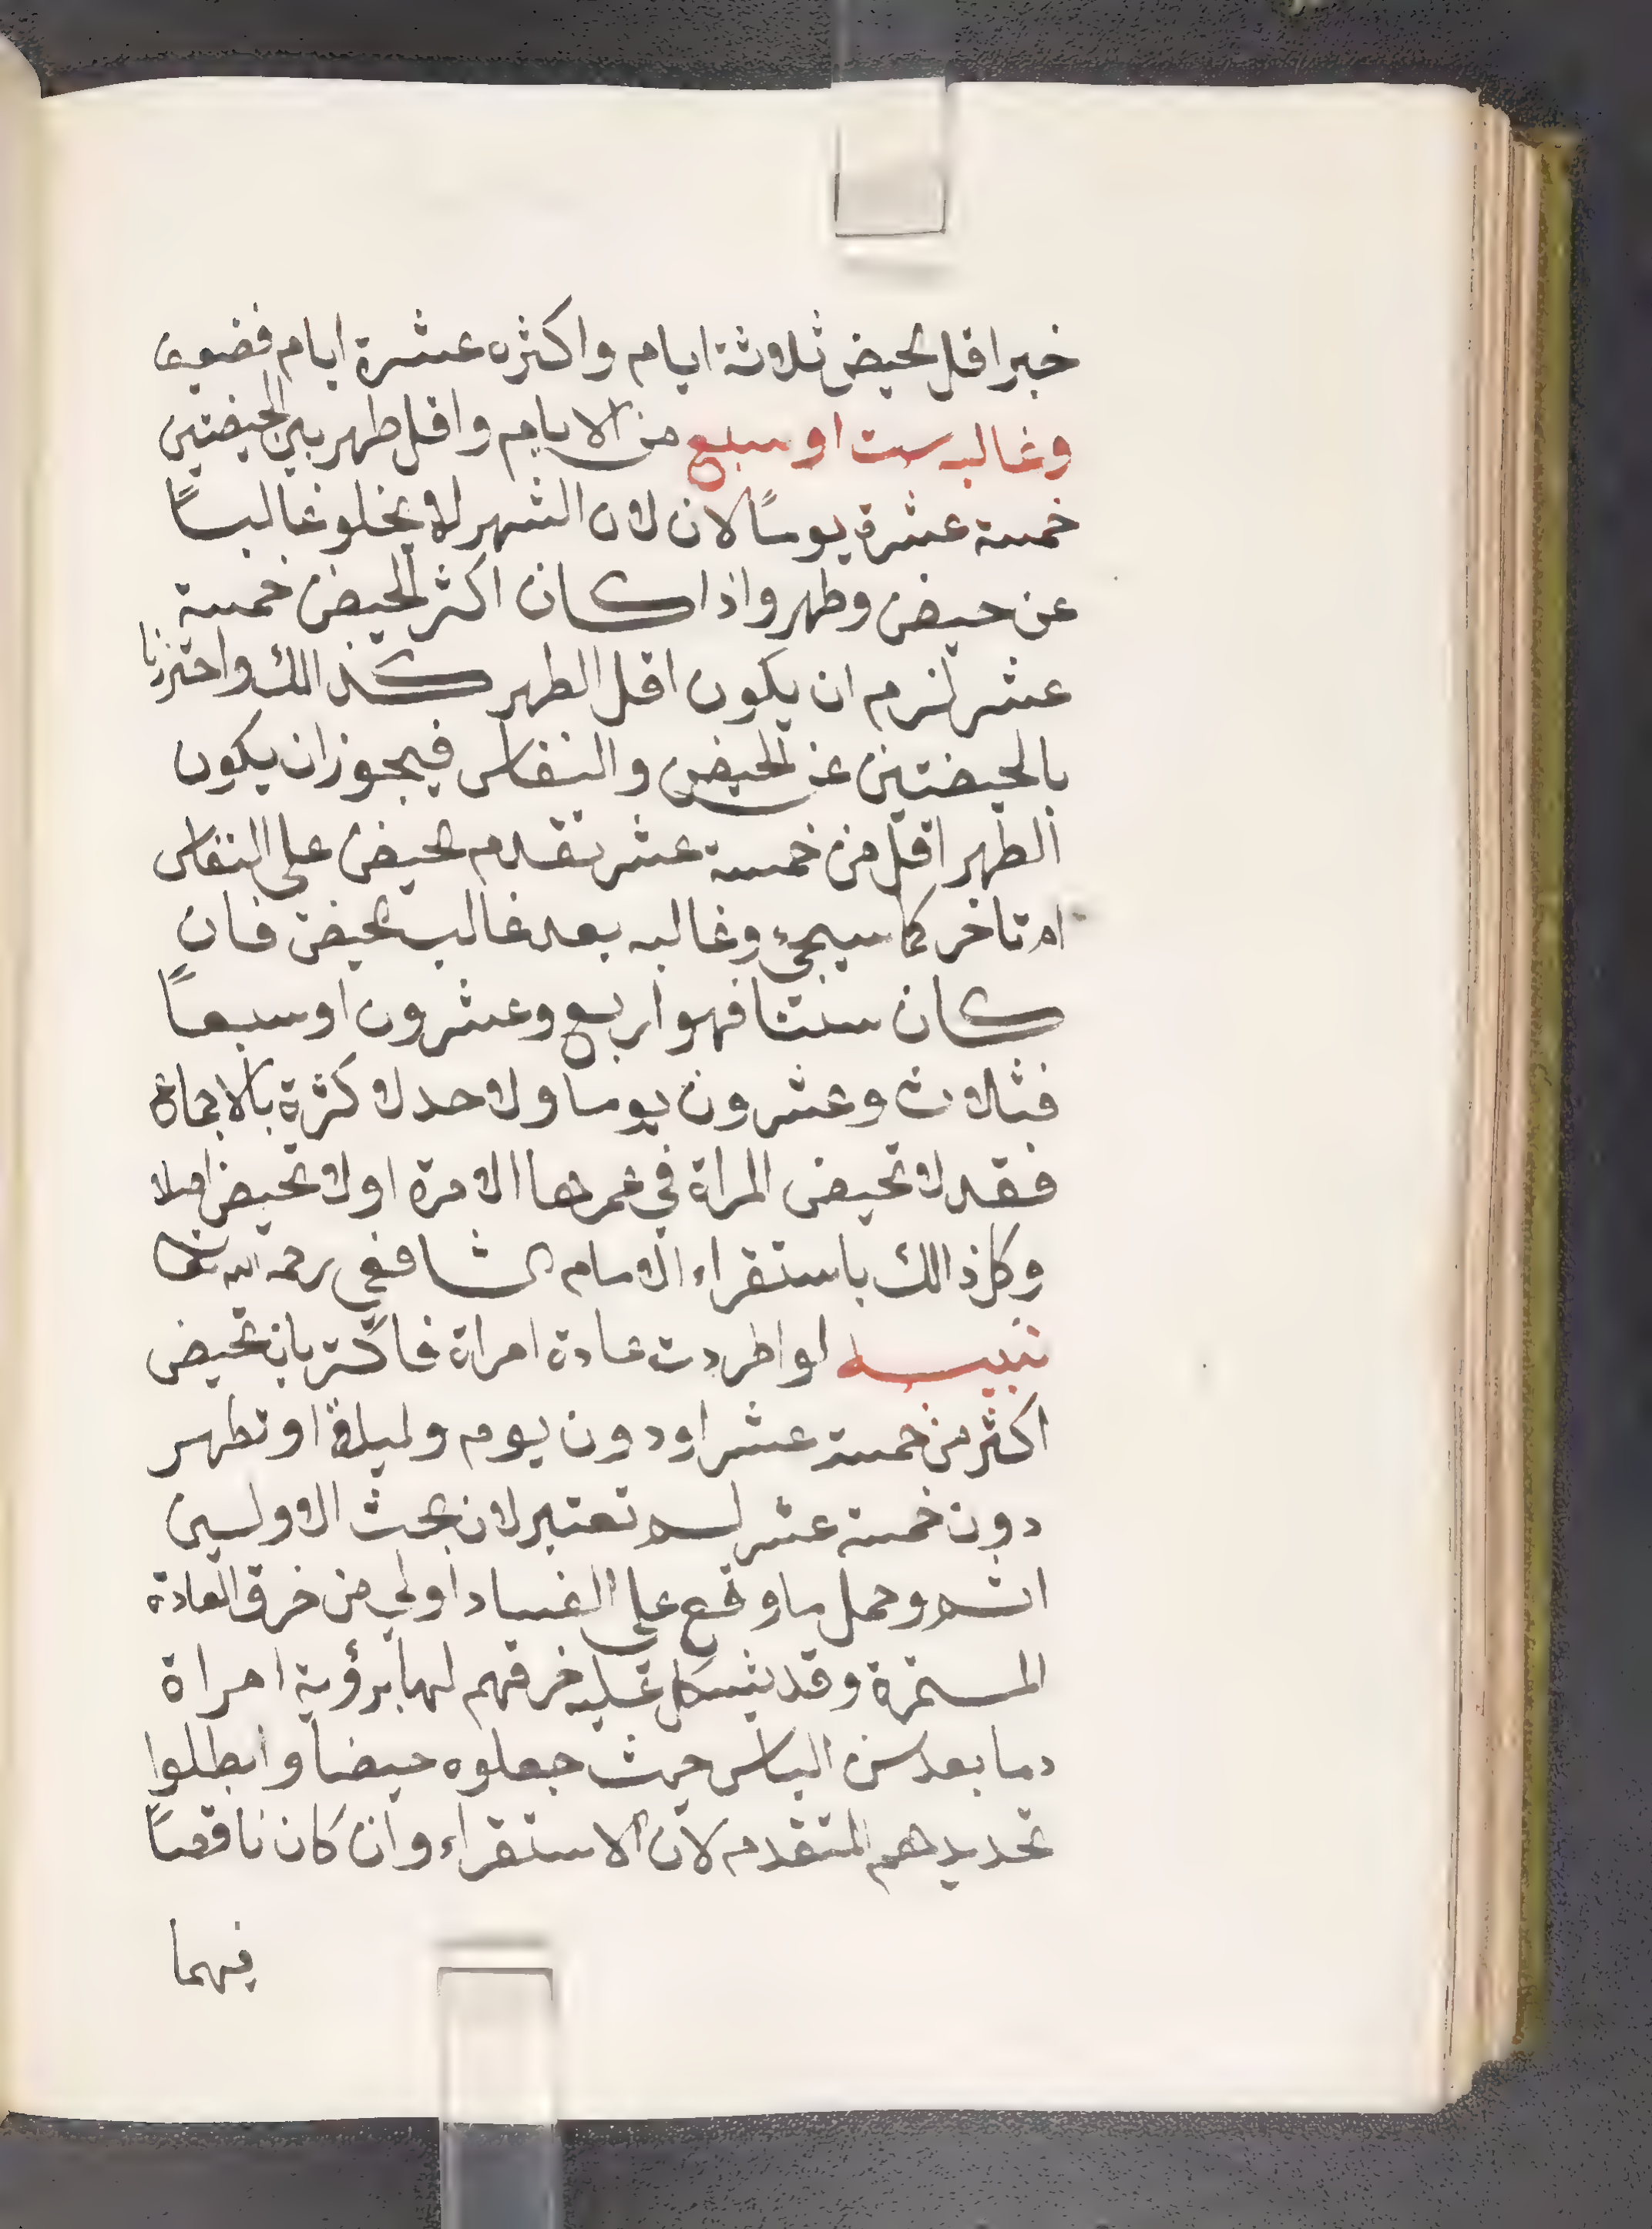 خبر اقل الحيض ثلاثة ايام واكثره عشرة ايام فضعيف
وغالبه ست او سبع من الايام واقل طهر بين الحيضتين
خمسة عشرة يوما لان لان الشهر لا يخلو غالبًا
عن حيض وطهر واذا كان اكثر الحيض خمسة
عشر لزم ان يكون اقل الطهر كذالك واحترزنا
بالحيضتين عن الحيض والنفاس فيجوز ان يكون
الطهر اقل من خمسة عشر تقدم الحيض على النفاس
ام تاخر كما سيجيء وغالبه بعد غالب الحيض فان
كان ستا فهو اربع وعشرون او سبعاً
فثلاث وعشرون يوما ولا حد لاكثرة بالاجماع
فقد لا تحيض المراة في عمرها الا مرة او لا تحيض اصلا
وكل ذالك باستقراء الامام الشافعي رحمه الله تعالى
تنبيه لو اطردت عادة امراة فاكثر بان تحيض
اكثر من خمسة عشر او دون يوم وليلة او تطهر
دون خمسة عشر لم تعتبر لان بحث الاولين
اتم وحمل ما وقع على الفساد اولي من خرق العادة
المستمرة وقد يشكل عليه خرقهم لها برؤية امراة
دما بعد سن الياس حيث جعلوه حيضا وابطلوا
تحديدهم المتقدم لان الاستقراء وان كان ناقصاً
فيهما